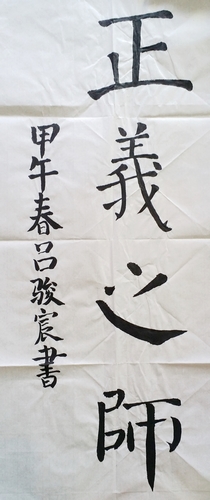 正義之師
甲午春吕骏宸書